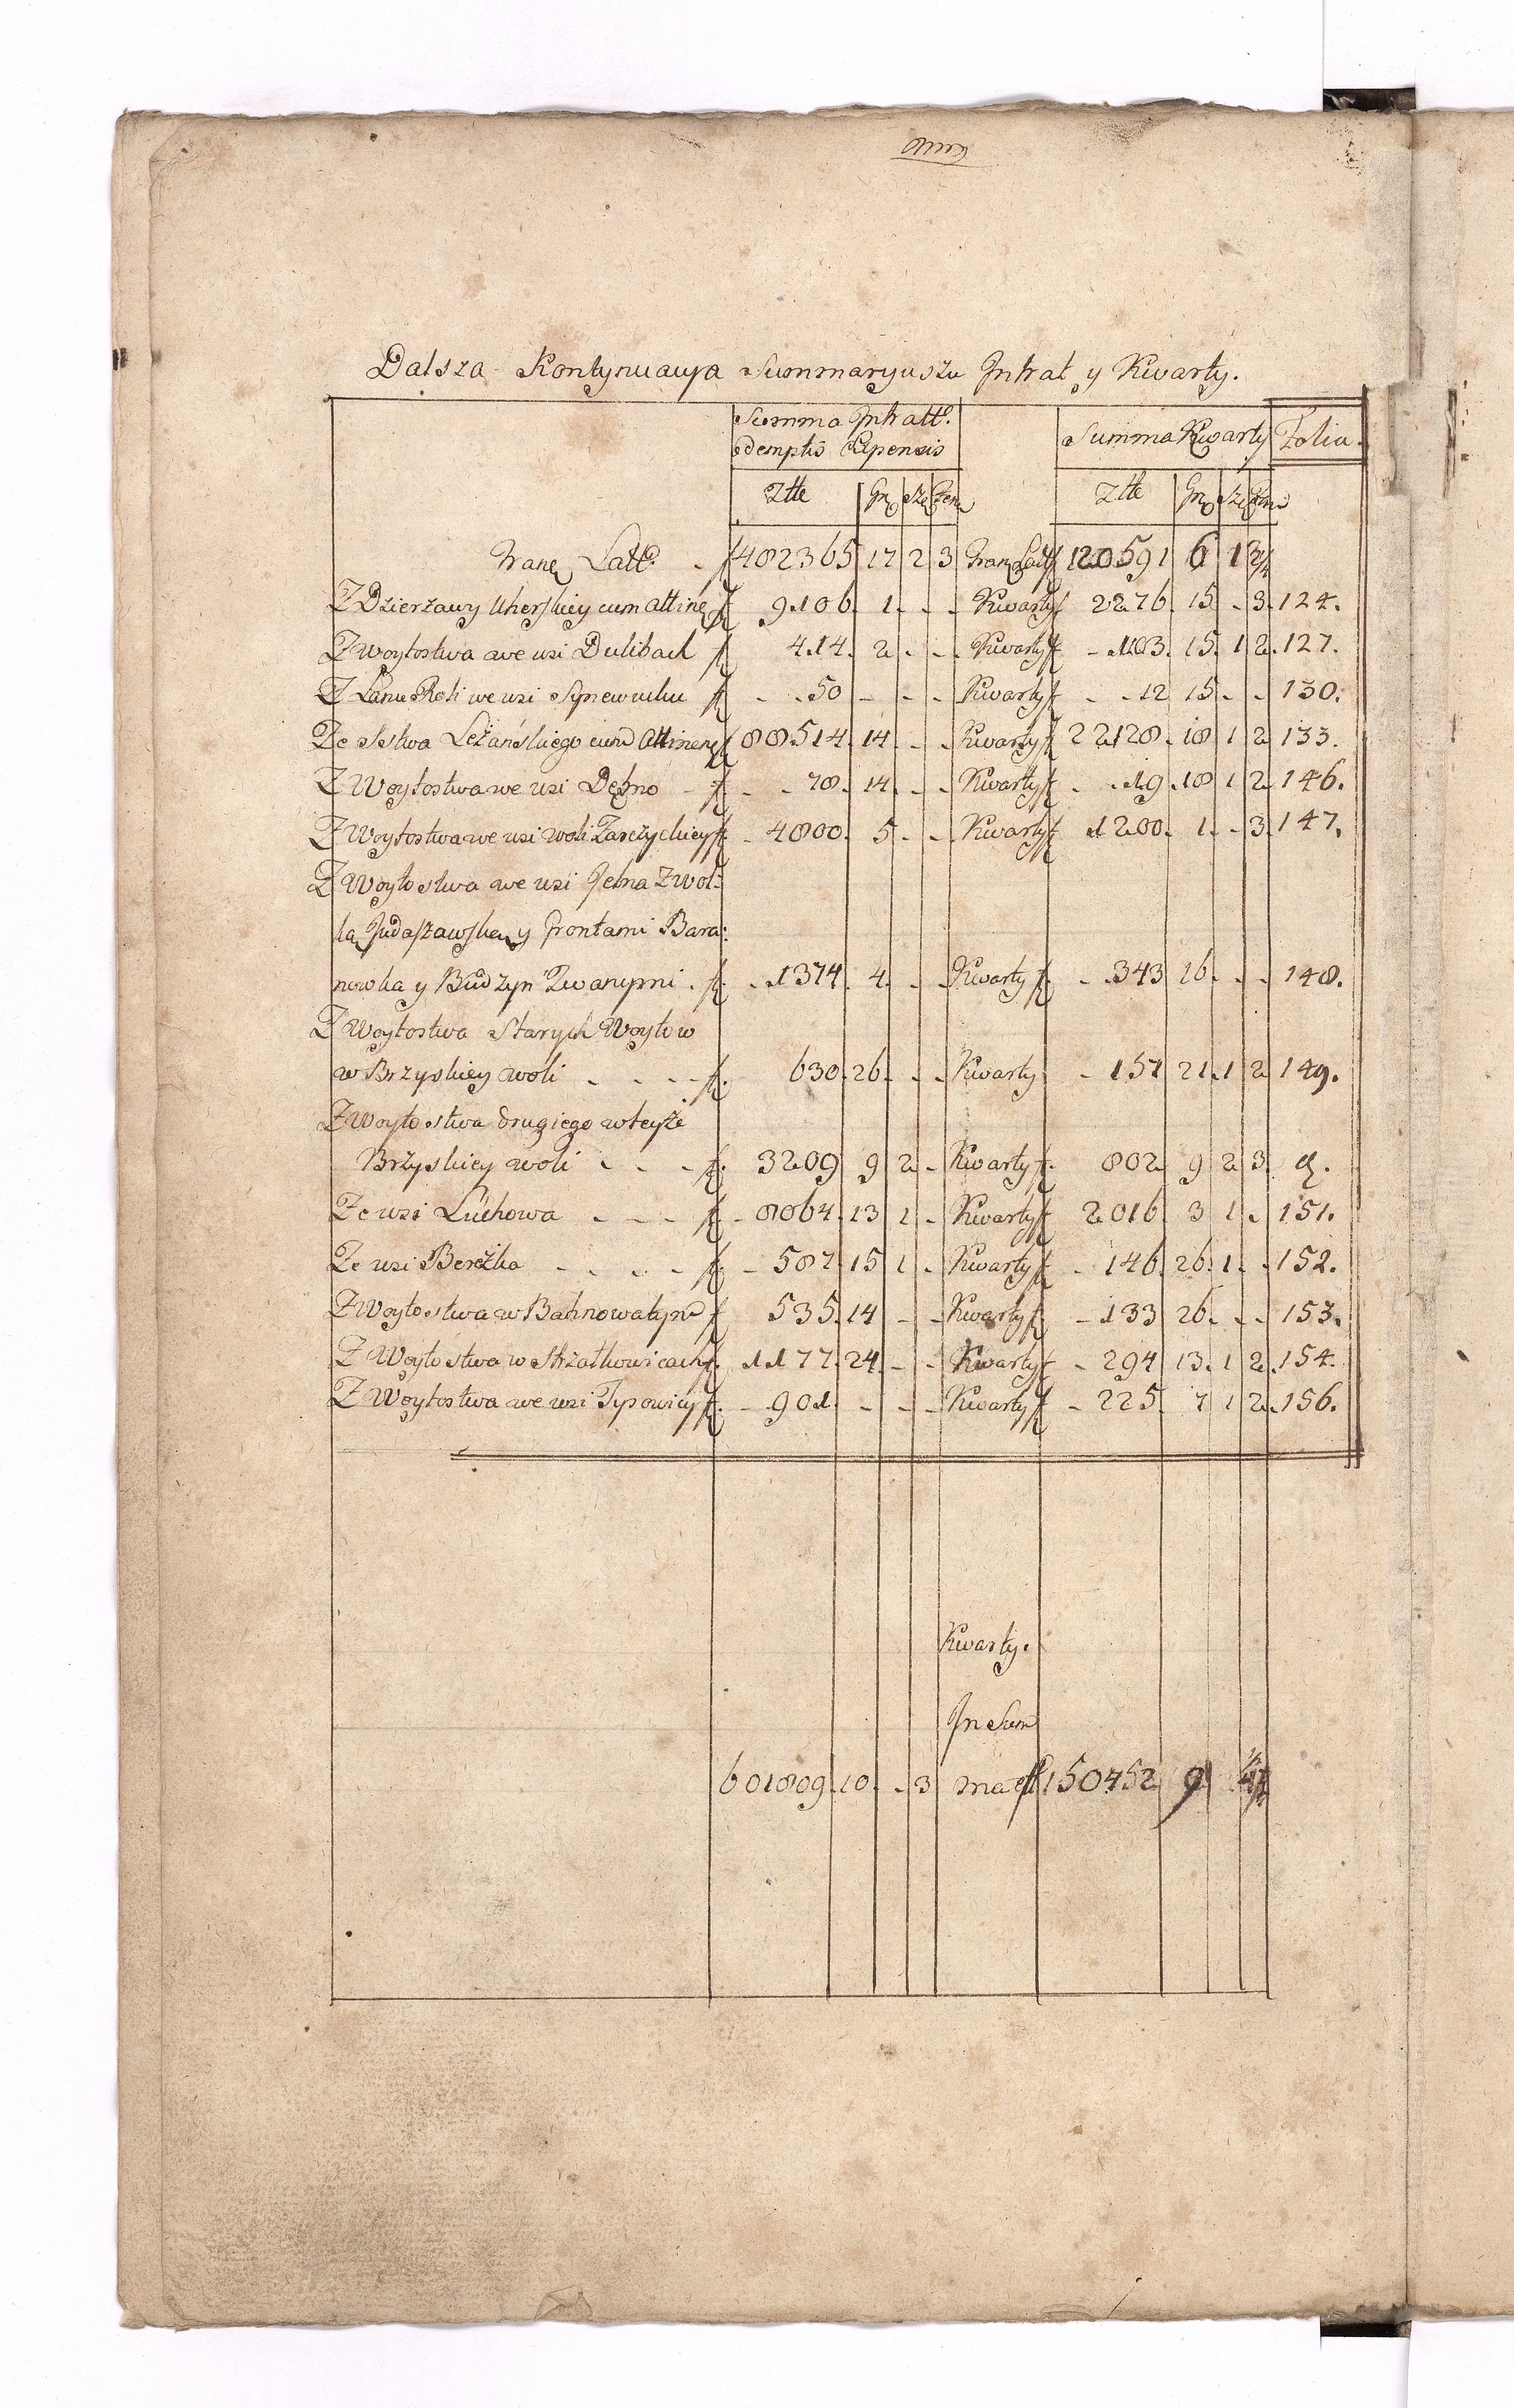 Dalsza Kontynuacya Summaryuszu Intrat y Kwarty.
Summa Intratt. Summa Kwarty Folia.
demptis Expensis
Złłe Gr Sze Den Złłe Gr Sze Den
Tranq Latt. f 482365 17 2 3 Tranq Latt f 120591 6 1
Z Dzierżawy Uherskiey cum attine f 9106. 1. - - Kwarty f 2276. 15 - 3. 124.
Z Woytostwa we wsi Dulibach f 414. 2. - - Kwarty f - 103. 15. 1 2. 127.
Z Łanu Roli we wsi Synewucku f - - 50 - - - Kwarty f - - 12 15 - - 130.
Ze Sstwa Leżańskiego cum Attinen f 88514. 14. - - Kwarty f 22128. 18 1 2. 133.
Z Woytostwa we wsi Dębno - f - - 78. 14. - - Kwarty f - - 19. 18 1 2. 146.
Z Woytostwa we wsi Woli Zarczyckiey f - 4800. 5 - - Kwarty f 1200. 1. - 3. 147.
Z Woytostwa we wsi Jelna z Wol:
ką Judaszawską y Grontami Bara:
nowka y Budzyn Zwanymi . f. - 1374. 4. - - Kwarty f. - 343 16. - - 148.
Z Woytostwa Starych Woytow
w Brzyskiey Woli - - - - f. 630. 26. - - Kwarty - 157 21. 1 2. 149.
Z Woytostwa drugiego w teyże
Brzyskiey Woli - - - f. 3209 9 2 - Kwarty f. 802 9 2 3.
Ze wsi Luchowa - - - f. - 8064. 13 1 - Kwarty f 2016. 3 1 - 151.
Ze wsi Bereżka - - - - f. - 587. 15 1 - Kwarty f - 146. 26. 1 - - 152.
Z Woytostwa w Bahnowatym f 535. 14 - - Kwarty f. - 133 26. - - 153.
Z Woytostwa w Strzałkowicach f. 1177. 24. - - Kwarty f - 294 13. 1 2. 154.
Z Woytostwa we wsi Tysowicy f. - 901. - - - Kwarty f - 225. 7 1 2. 156.
Kwarty.
In Sum
601809. 10. - 3 ma ef 150452 9